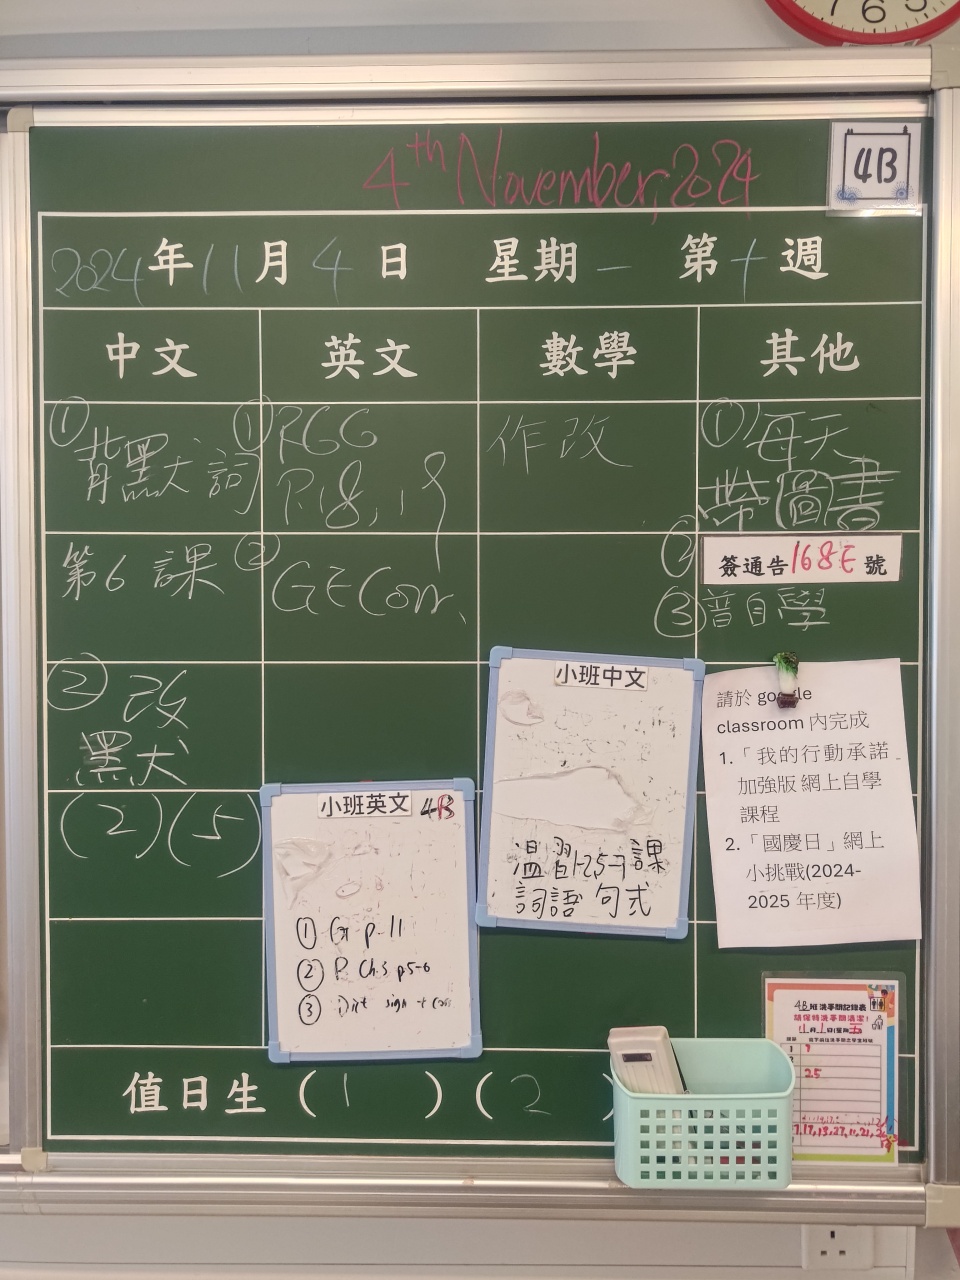 7 6 5
4th November, 2024
4B
2024年11月4日 星期一 第十週
中文 英文 數學 其他
① 背默大詞
第6課
② 改
黑犬
(2)(5)
① RGG
P.18, 19
② GE Corr.
作改
① 每天
帶圖書
② 簽通告168E號
③ 普自學
小班中文
溫習1-25-7課
詞語 句式
請於 google
classroom 內完成
1.「我的行動承諾
加強版 網上自學
課程
2.「國慶日」網上
小挑戰(2024-
2025 年度)
小班英文 4B
① G p.11
② P Ch.3 p5-6
③ Dict sign + Corr
4B班洗手間記錄表
請保持洗手間清潔！
11月1日(星期五)
1
25
值日生 (1) (2